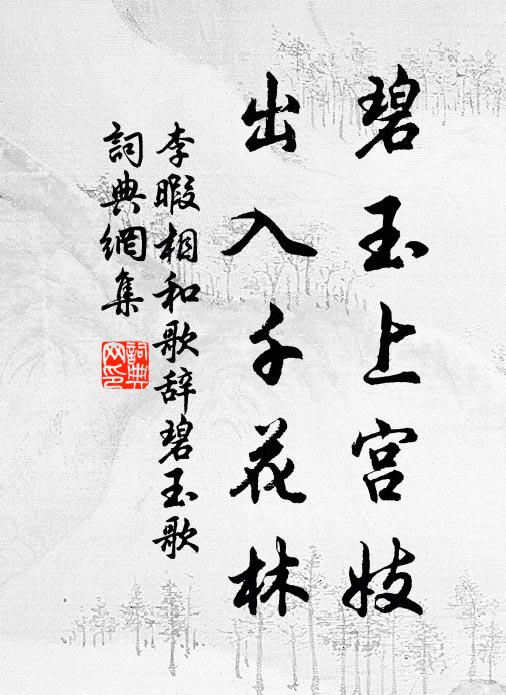 碧玉上宫妓
出入千花林
李暇相和歌辞碧玉歌
詞典網集
詞典網印